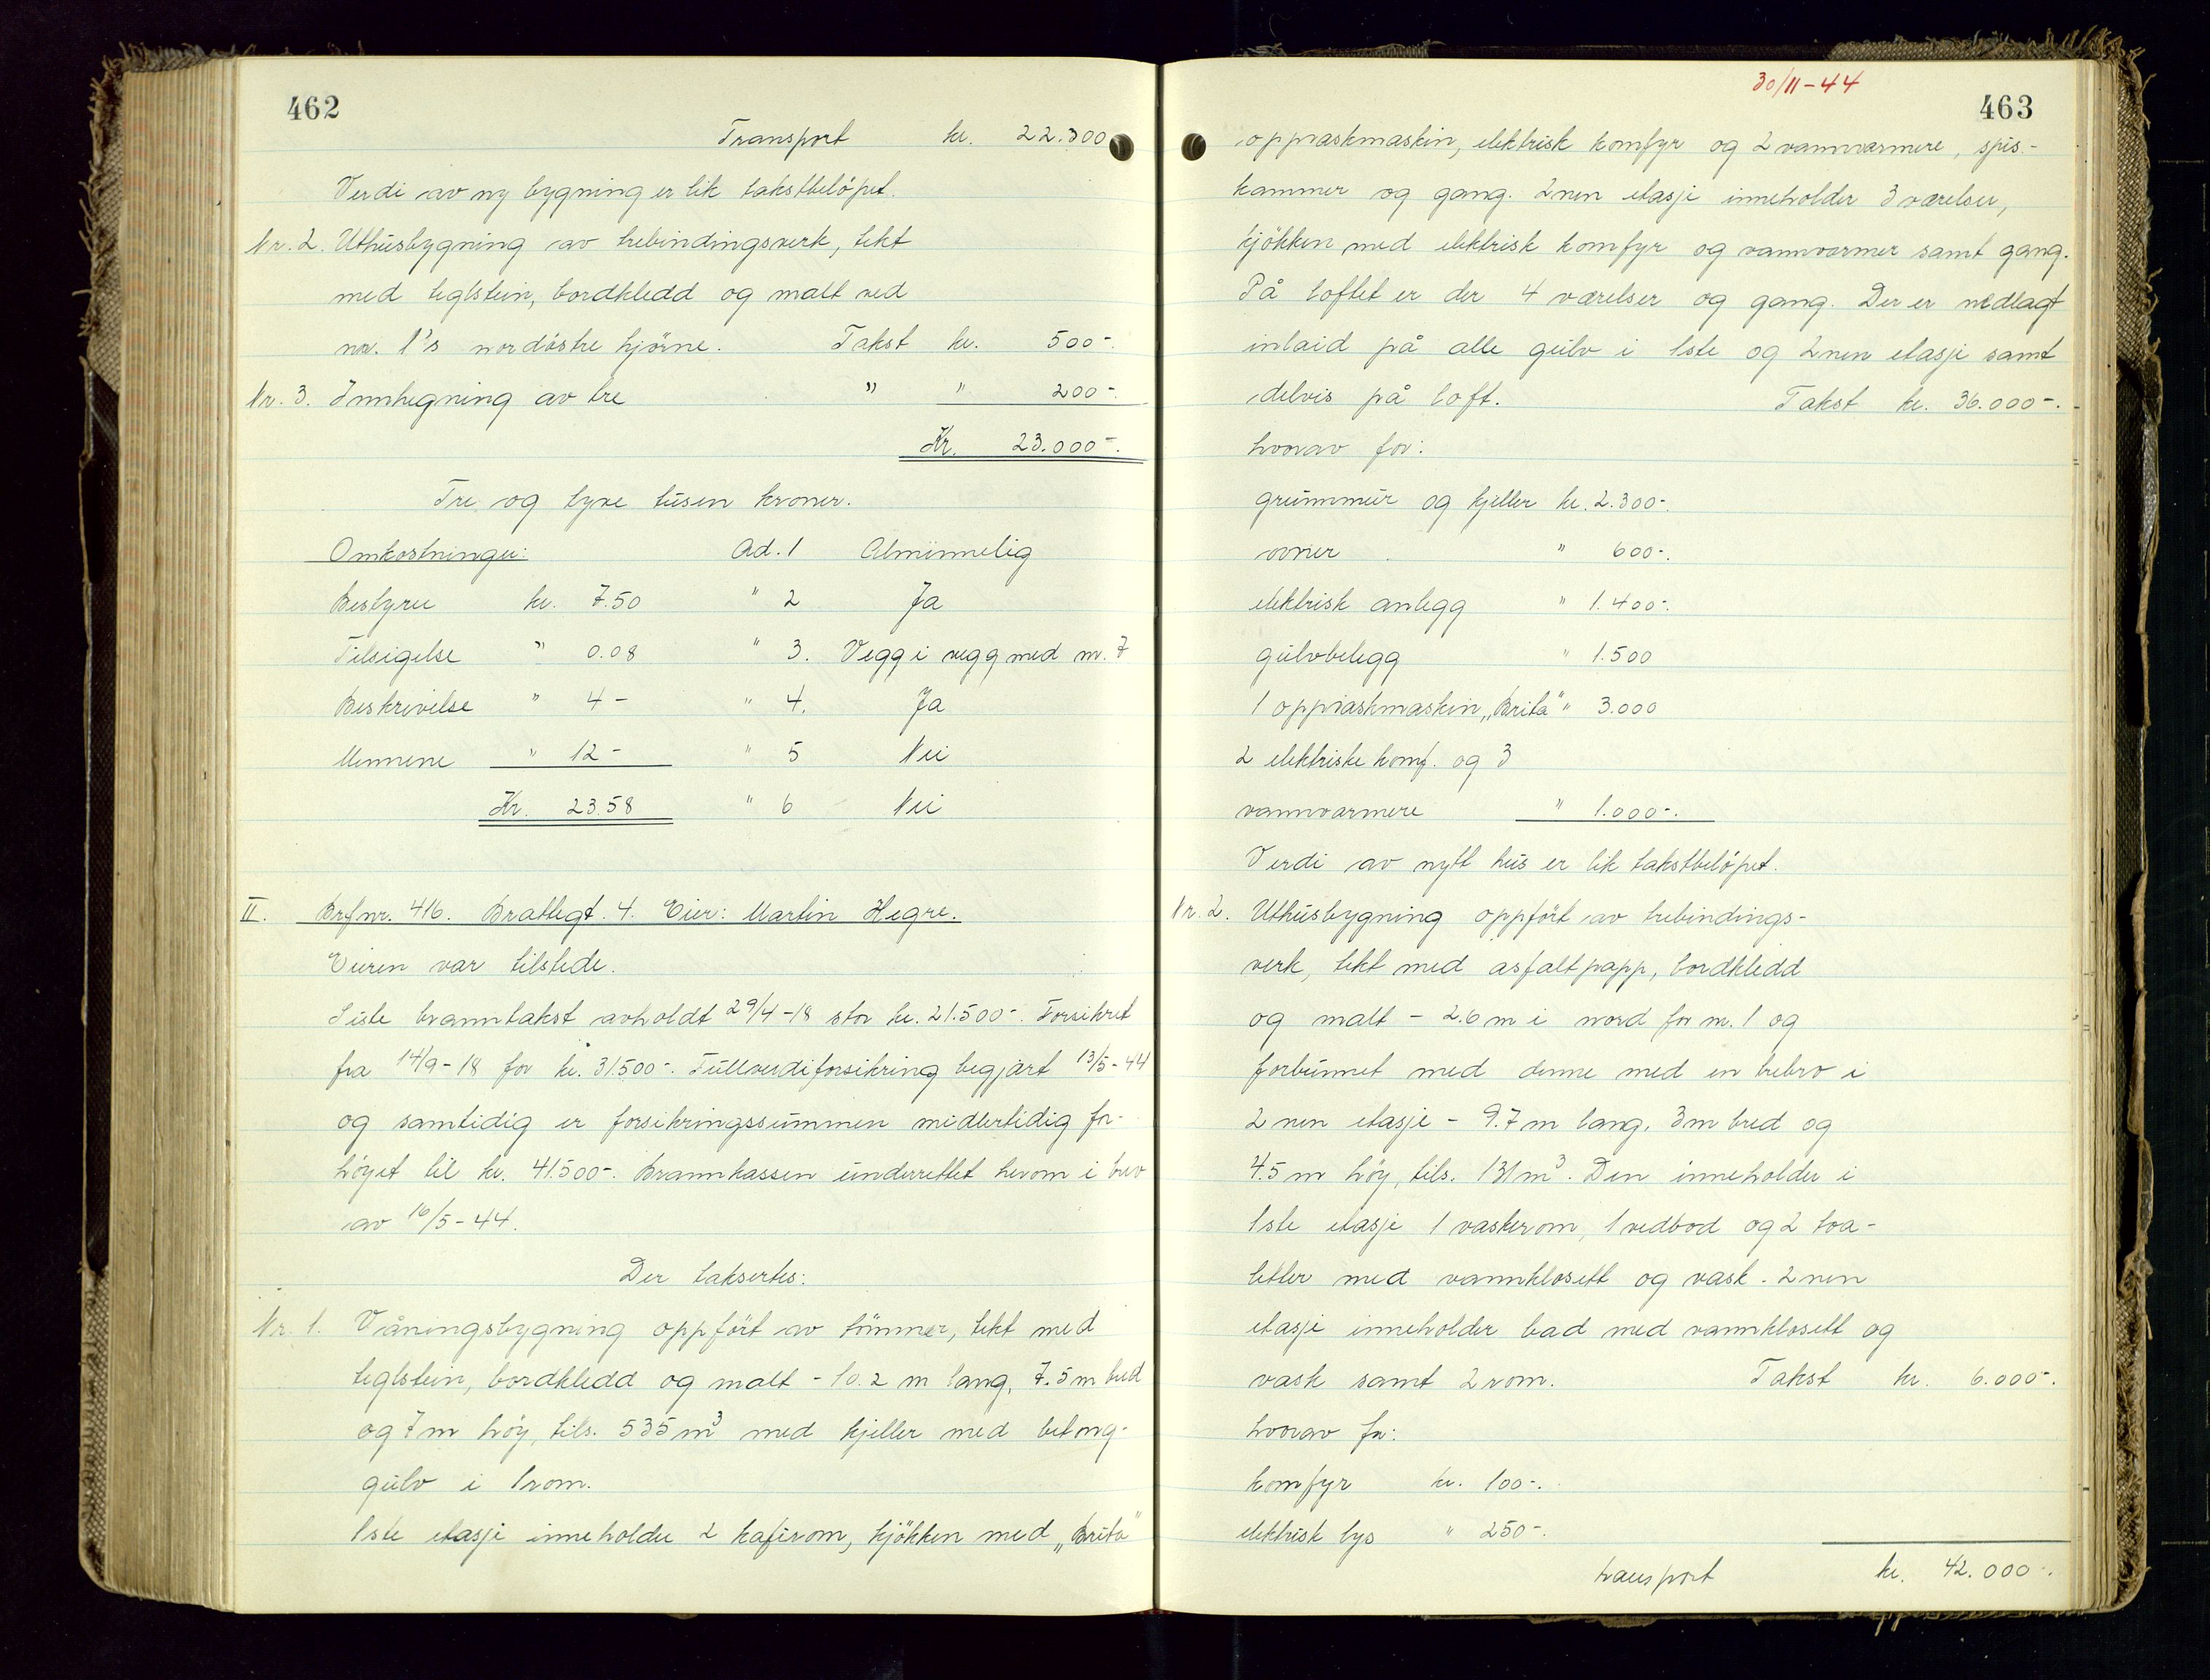 462
Transport kr. 22.300
Verdi av ny bygning er lik takstbeløpet.
Nr. 2. Uthusbygning av trebindingsverk, tekt
med teglstein, bordkledd og malt ved
nr. 1's nordöstre hjørne. Takst kr. 500-.
Nr. 3. Innhegning av tre " " 200-.
Kr. 23.000-.
Tre og tyve tusen kroner.
Omkostninger: Ad. 1 Alminnelig
Bestyrer kr. 7.50 " 2 Ja
Tilsigelse " 0.08 " 3. Vegg i vegg med nr. 7
Beskrivelse " 4- " 4. Ja
Mennene " 12- " 5 Nei
Kr. 23.58 " 6 Nei
II. Brf.nr. 416. Brattegt. 4. Eier: Martin Hegre.
Eieren var tilstede.
Siste branntakst avholdt 29/4-18 stor kr. 21.500-. Forsikret
fra 14/9-18 for kr. 31.500-. Fullverdiforsikring begjært 13/5-44
og samtidig er forsikringssummen midlertidig for-
höyet til kr. 41.500-. Brannkassen underrettet herom i brev
av 16/5-44.
Der taksertes:
Nr. 1. Våningsbygning oppfört av tömmer, tekt med
teglstein, bordkledd og malt - 10.2 m lang, 7.5 m bred
og 7 m höy, tils. 535 m³ med kjeller med betong-
gulv i 1 rom.
1ste etasje inneholder 2 kaferom, kjökken med „Brita"
30/11-44
463
oppvaskmaskin, elektrisk komfyr og 2 vannvarmere, spis-
kammer og gang. 2nen etasje inneholder 3 værelser,
kjökken med elektrisk komfyr og vannvarmer samt gang.
På loftet er der 4 værelser og gang. Der er nedlagt
inlaid på alle gulv i 1ste og 2nen etasje samt
delvis på loft. Takst kr. 36.000-.
hvorav for:
grunnmur og kjeller kr. 2.300-.
ovner " 600-.
elektrisk anlegg " 1.400-.
gulvbelegg " 1.500
1 oppvaskmaskin „Brita" " 3.000
2 elektriske komf. og 3
vannvarmere " 1.000-.
Verdi av nytt hus er lik takstbelöpet.
Nr. 2. Uthusbygning oppfört av trebindings-
verk, tekt med asfaltpapp, bordkledd
og malt - 2.6 m i nord for nr. 1 og
forbunnet med denne med en trebro i
2nen etasje - 9.7 m lang, 3 m bred og
4.5 m höy, tils. 131 m³. Den inneholder i
1ste etasje 1 vaskerom, 1 vedbod og 2 toa-
letter med vannklosett og vask. 2nen
etasje inneholder bad med vannklosett og
vask samt 2 rom. Takst kr. 6.000-.
hvorav for:
komfyr kr. 100-.
elektrisk lys " 250-.
transport kr. 42.000-.